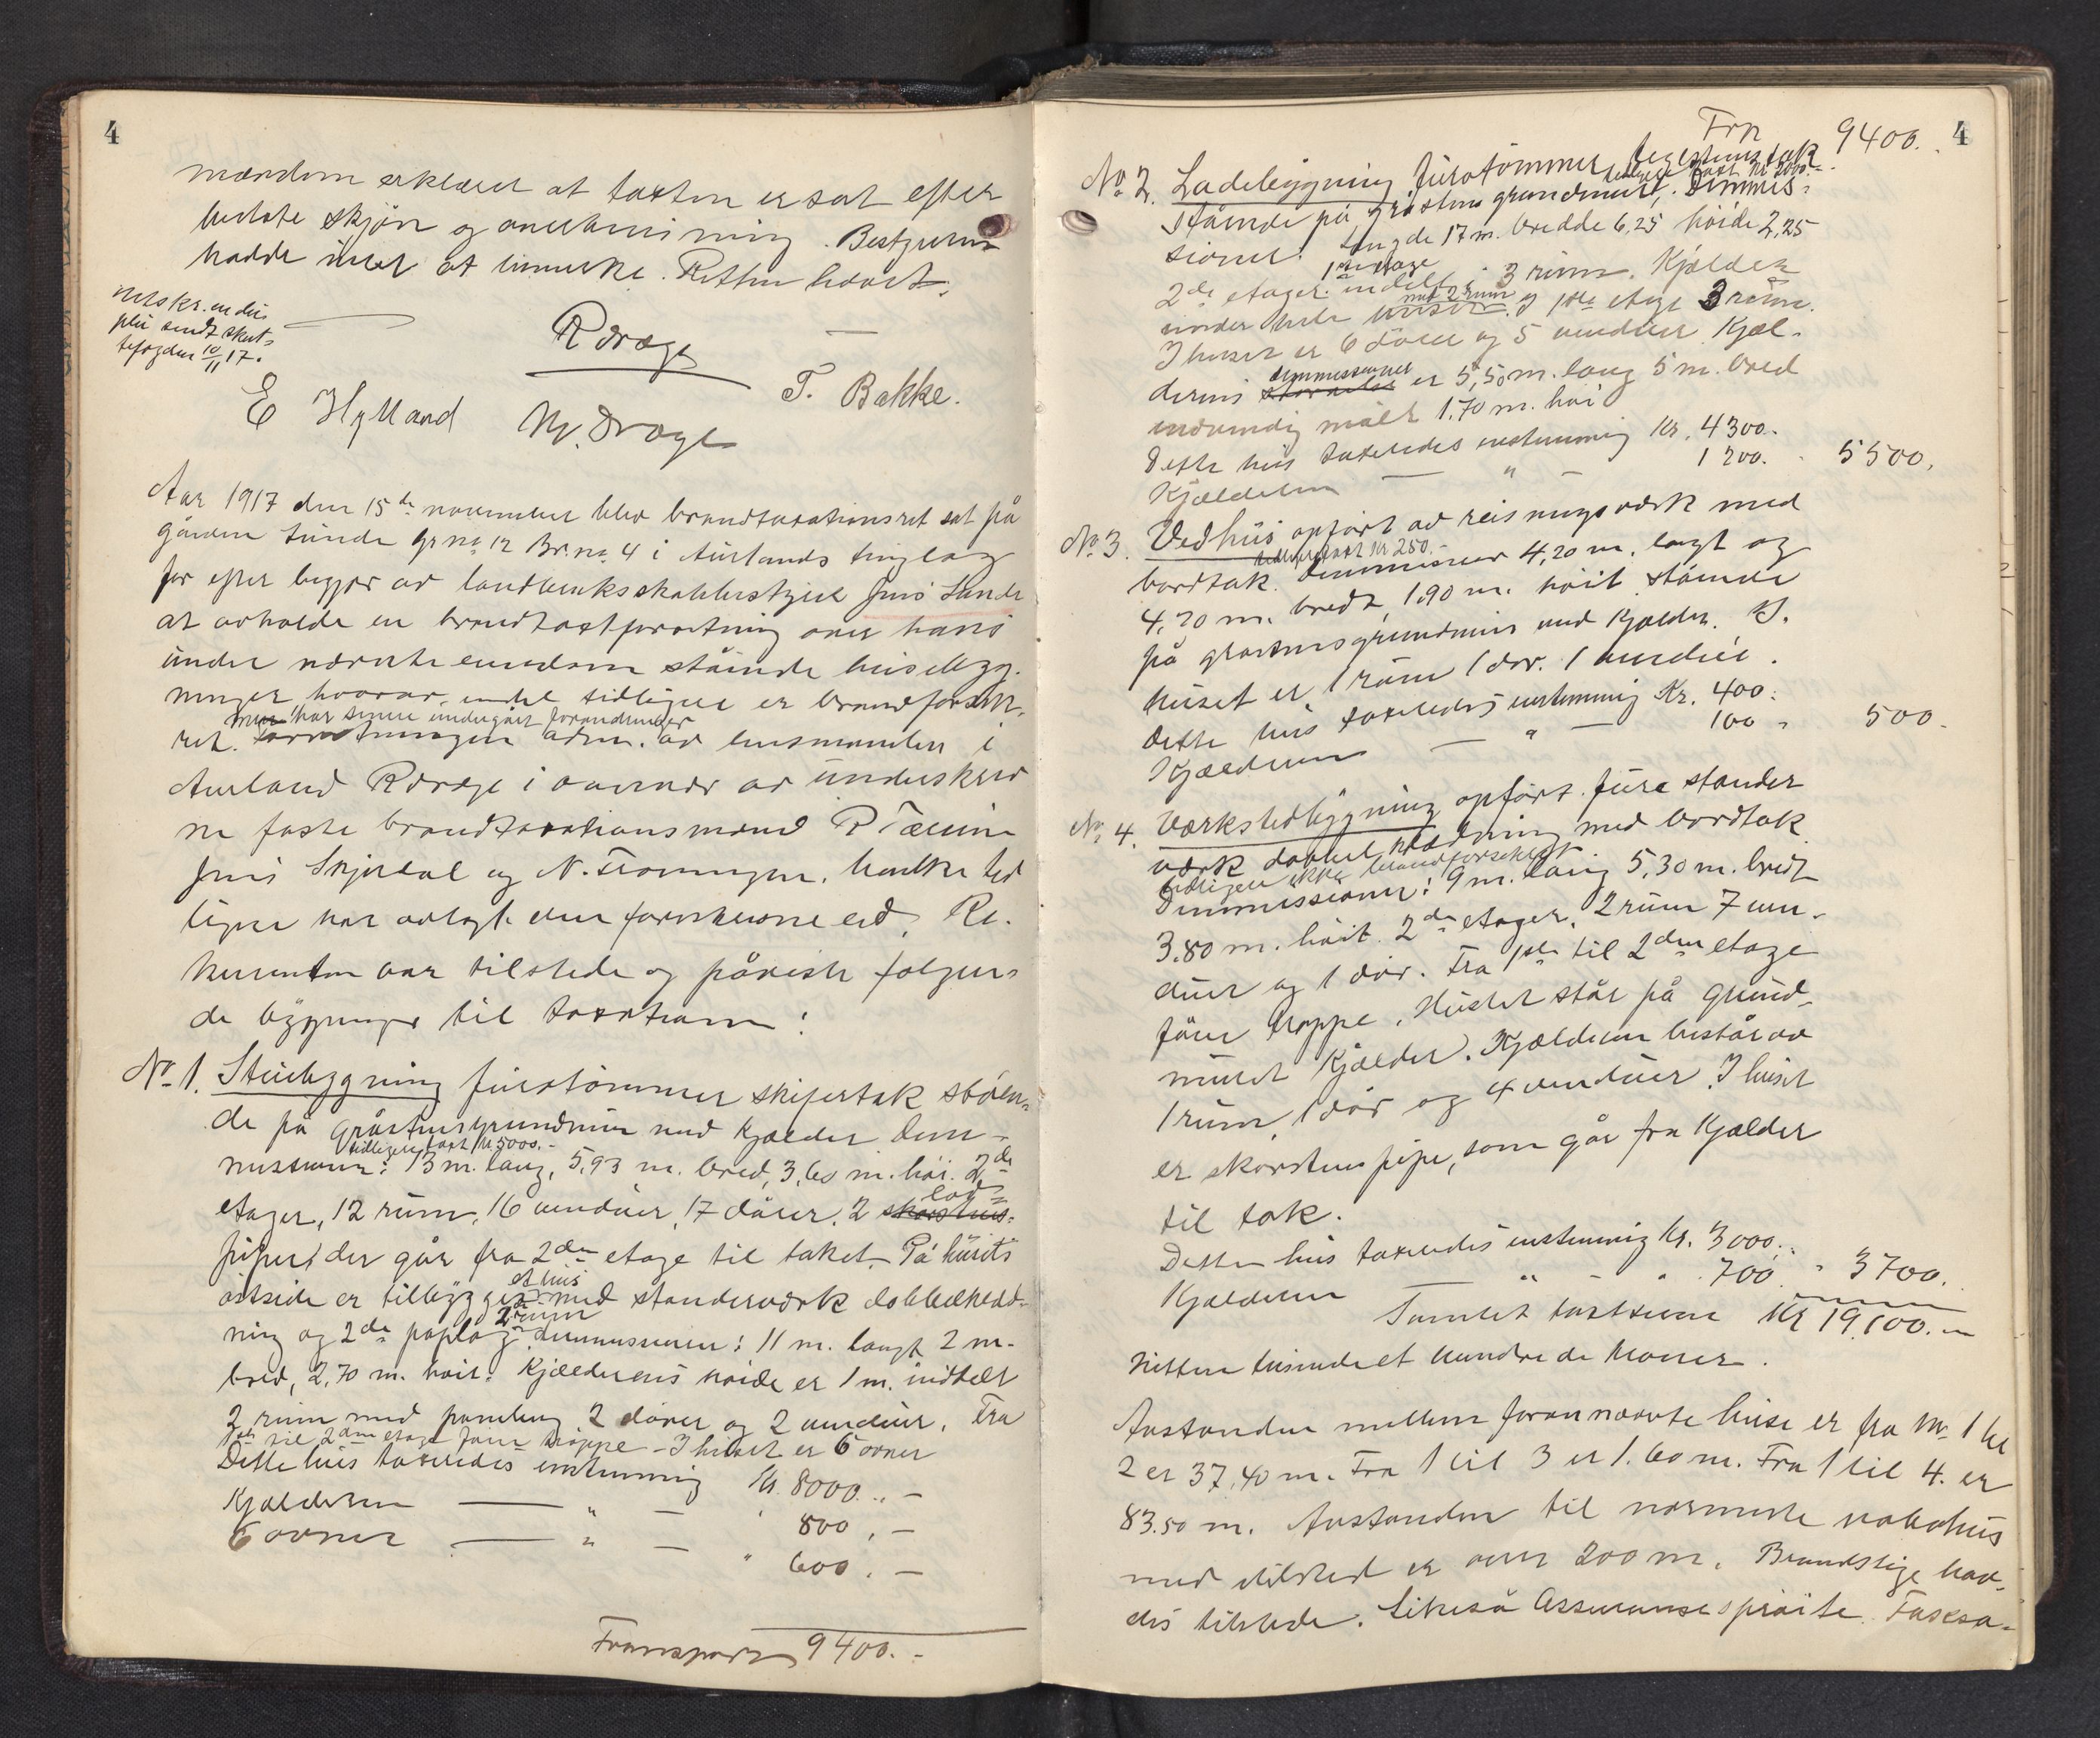 4
mændene erklæret at taxten er sat efter
bedste skjøn og overbevisning. Bestyreren
hadde intet at bemerke. Retten hævet.
utskr. en du-
pli sendt skat-
tefogden 10/11 17.
R Dræge
E Hylland N. Dræge T. Bakke.
Aar 1917 den 15de november blev brandtaxationsret sat på
gården Lunde Gr no 12 Br. no 4 i Aurlands tinglag
for efter begjær av landbruksskolebestyrer Jens Lunde
at avholde en brandtaxtforretning over hans
under nævnte eiendom stående husebyg-
ninger hvorav endel tidligere er brandforsik-
men har senere undergået forandringer
ret. Forretningen adm. av lensmanden i
Aurland R Dræge i overvær av underskrev
ne faste brandtaxationsmænd R Terum
Jens Skjerdal og N. Froningen, hvilke tid
ligere har avlagt den forskrevne ed. Re-
kvirenten var tilstede og påviste følgen-
de bygninger til taxation:
No 1. Stuebygning furutømmer skifertak ståen-
de på gråstensgrundmur med kjælder Dim-
tidligere taxt kr 5000.-
missioner: 13 m. lang, 5,93 m. bred, 3,60 m. høi. 2de
etager, 12 rum, 16 vinduer, 17 dører. 2 skorstens-
piper, der går fra 2den etage til taket. På husets
østside er tilbygget et hus med standerverk dobbeltkled-
2 rum
ning og 2de paplag. dimmissioner: 11 m. langt 2 m.
bred, 2,70 m. høit. Kjælderens høide er 1 m. inddelt
2 rum med paneling 2 dører og 2 vinduer. Fra
1ste til 2den etage fører trappe - I huset er 6 ovner
Dette hus taxeredes enstemmig kr. 8000.-
Kjælderen — " — " 800.-
6 ovner — " — " 600.-
Transport 9400.-
Trp 9400. 4
No 2. Ladebygning furutømmer, teglstenstak
tidligere taxt kr 2000.-
stående på gråstens grundmur, Dimmis-
sioner: Længde 17 m. bredde 6,25 høide 2,25
1ste etage
2de etager inddelt i 3 rum. Kjælder
med 2 rum
under hele huset og 1ste etage 3 rum.
I huset er 6 dører og 5 vinduer. Kjæl-
dimmissioner
derens er 5,50 m. lang 5 m. bred
indvendig målt 1.70 m. høi
Dette hus taxeredes enstemmig kr. 4300.
Kjælderen — " — 1200. 5500.
No 3. Vedhus opført av reisningsværk med
tidligere taxt kr 250.-
bordtak. Dimmissioner 4,20 m. langt og
4,20 m. bredt, 1,90 m. høit stående
på gråstensgrundmur med kjælder. I
huset er 1 rum 1 dør. 1 vindu.
Dette hus taxeredes enstemmig Kr. 400.
Kjælderen — " — 100 " 500.
No 4. Værkstedbygning opført fure stander
værk dobbel klædning med bordtak
tidligere ikke brandforsikret
Dimmissioner: 9 m. lang 5,30 m. bredt
3.80 m. høit. 2de etager, 2 rum 7 vin-
duer og 1 dør. Fra 1ste til 2den etage
fører trappe. Huset står på grund-
muret kjælder. Kjælderen består av
1 rum, 1 dør og 4 vinduer. I huset
er skorstens pipe, som går fra kjælder
til tak.
Dette hus taxeredes enstemmig kr. 3000.
Kjælderen " - " 700. " 3700.
Samlet taxtsum Kr 19,100.-
Nitten tusinde et hundrede kroner.
Avstanden mellem forannævnte huse er fra No 1 til
2 er 37,40 m. Fra 1 til 3 er 1.60 m. Fra 1 til 4. er
83.50 m. Avstanden til nærmeste nabohus
med ildsted er over 200 m. Brandstige hav-
des tilstede. Likeså Assuransesprøite. Taxsa-